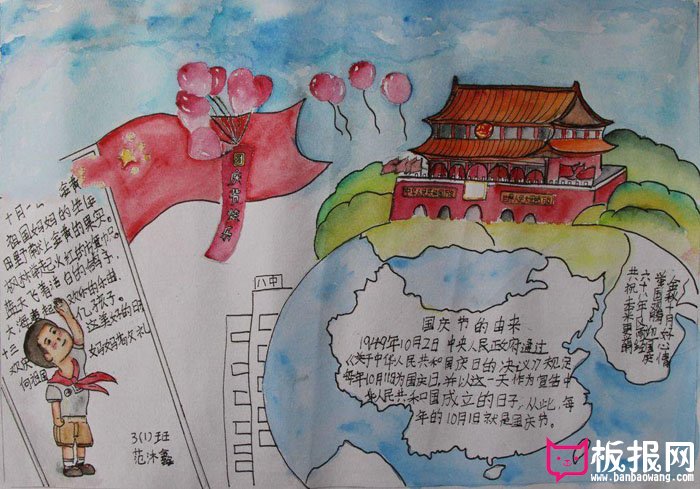 国庆节快乐
中华人民共和国万岁
世界人民大团结万岁
八中
十月
祖国妈妈的生日
田野献上金黄的果实。
枫林举起火红的
蓝天飞着洁白的鸽子,
亿孩子。
向祖国妈妈敬礼
3(1)班
范沐鑫
国庆节的由来
1949年10月2日中央人民政府通过
《关于中华人民共和国国庆日的决议》规定
每年10月1日为国庆日,并以这一天作为宣告中
华人民共和国成立的日子,从此,每
年的10月1日就是国庆节。
金秋十月好心情
举国欢腾
共祝未来更
板报网
www.banbaowang.com